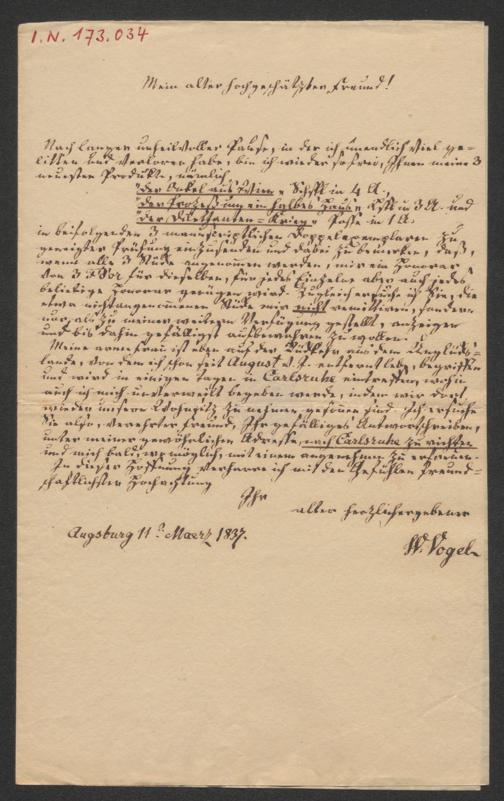 I.N. 173.034
Mein alter hochgeschätzter Freund!
Nach langer unheilvoller Pause, in der ich unendlich viel ge-
litten und verloren habe, bin ich wieder so frei, Ihnen meine 3
neuesten Produkte, nämlich
"Der Onkel aus Wien" Schspl in 4 A.,
"Der Prozeß um ein halbes Haus" Lustsp in 3 A. und
"Der Duettanten=Krieg" Posse in 1 A.
in beifolgenden 3 manuscriptlichen Doppelexemplaren zu
geneigter Prüfung einzusenden und dabei zu bemerken, daß,
wenn alle 3 Stücke angenommen werden, mir ein Honorar
von 3 für dieselben, für jedes Einzelne aber auch jedes
beliebige Honorar genügen wird. Zugleich ersuche ich Sie, die
etwa nichtangenommenen Stücke mir nicht remittiren, sondern
nur, als zu meiner weitern Verfügung gestellt, anzeigen
und bis dahin gefälligst aufbewahren zu wollen.
Meine arme Frau ist eben auf der Rückkehr aus dem Unglücks-
lande, von dem ich schon seit August v. J. entfernt lebe, begriffen
und wird in einigen Tagen in Carlsruhe eintreffen, wohin
auch ich mich unverweilt begeben werde, indem wir dort
wieder unsern Wohnsitz zu nehmen gesonnen sind. Ich ersuche
Sie also, verehrter Freund, Ihr gefälliges Antwortschreiben,
unter meiner gewöhnlichen Adresse, nach Carlsruhe zu richten
und mich bald, wo möglich, mit einem angenehmen zu erfreuen.
In dieser Hoffnung verharre ich mit den Gefühlen freund-
schaftlichster Hochachtung
Ihr
alter herzlichergebener
Augsburg 11t Maerz 1837.
W. Vogel